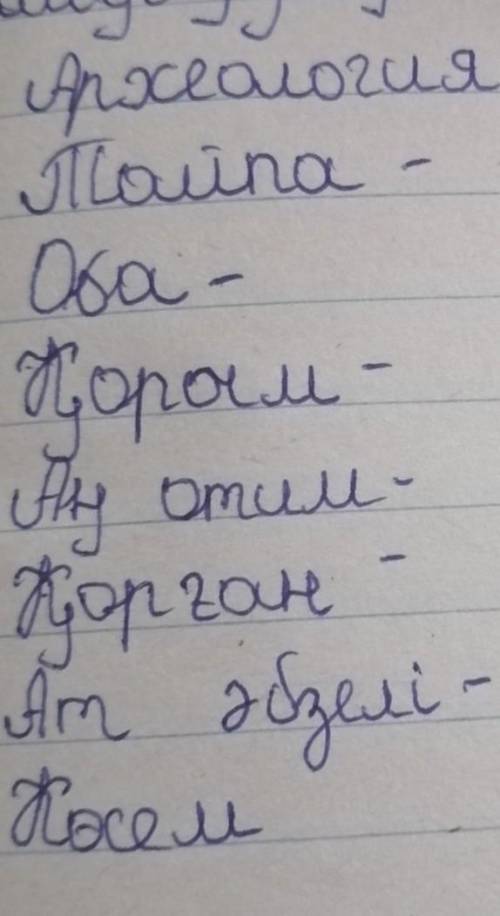 Археалогия
Тайпа -
Оба -
Қорым -
Ақ отим -
Қорған -
Ат әбзелі -
Көсем